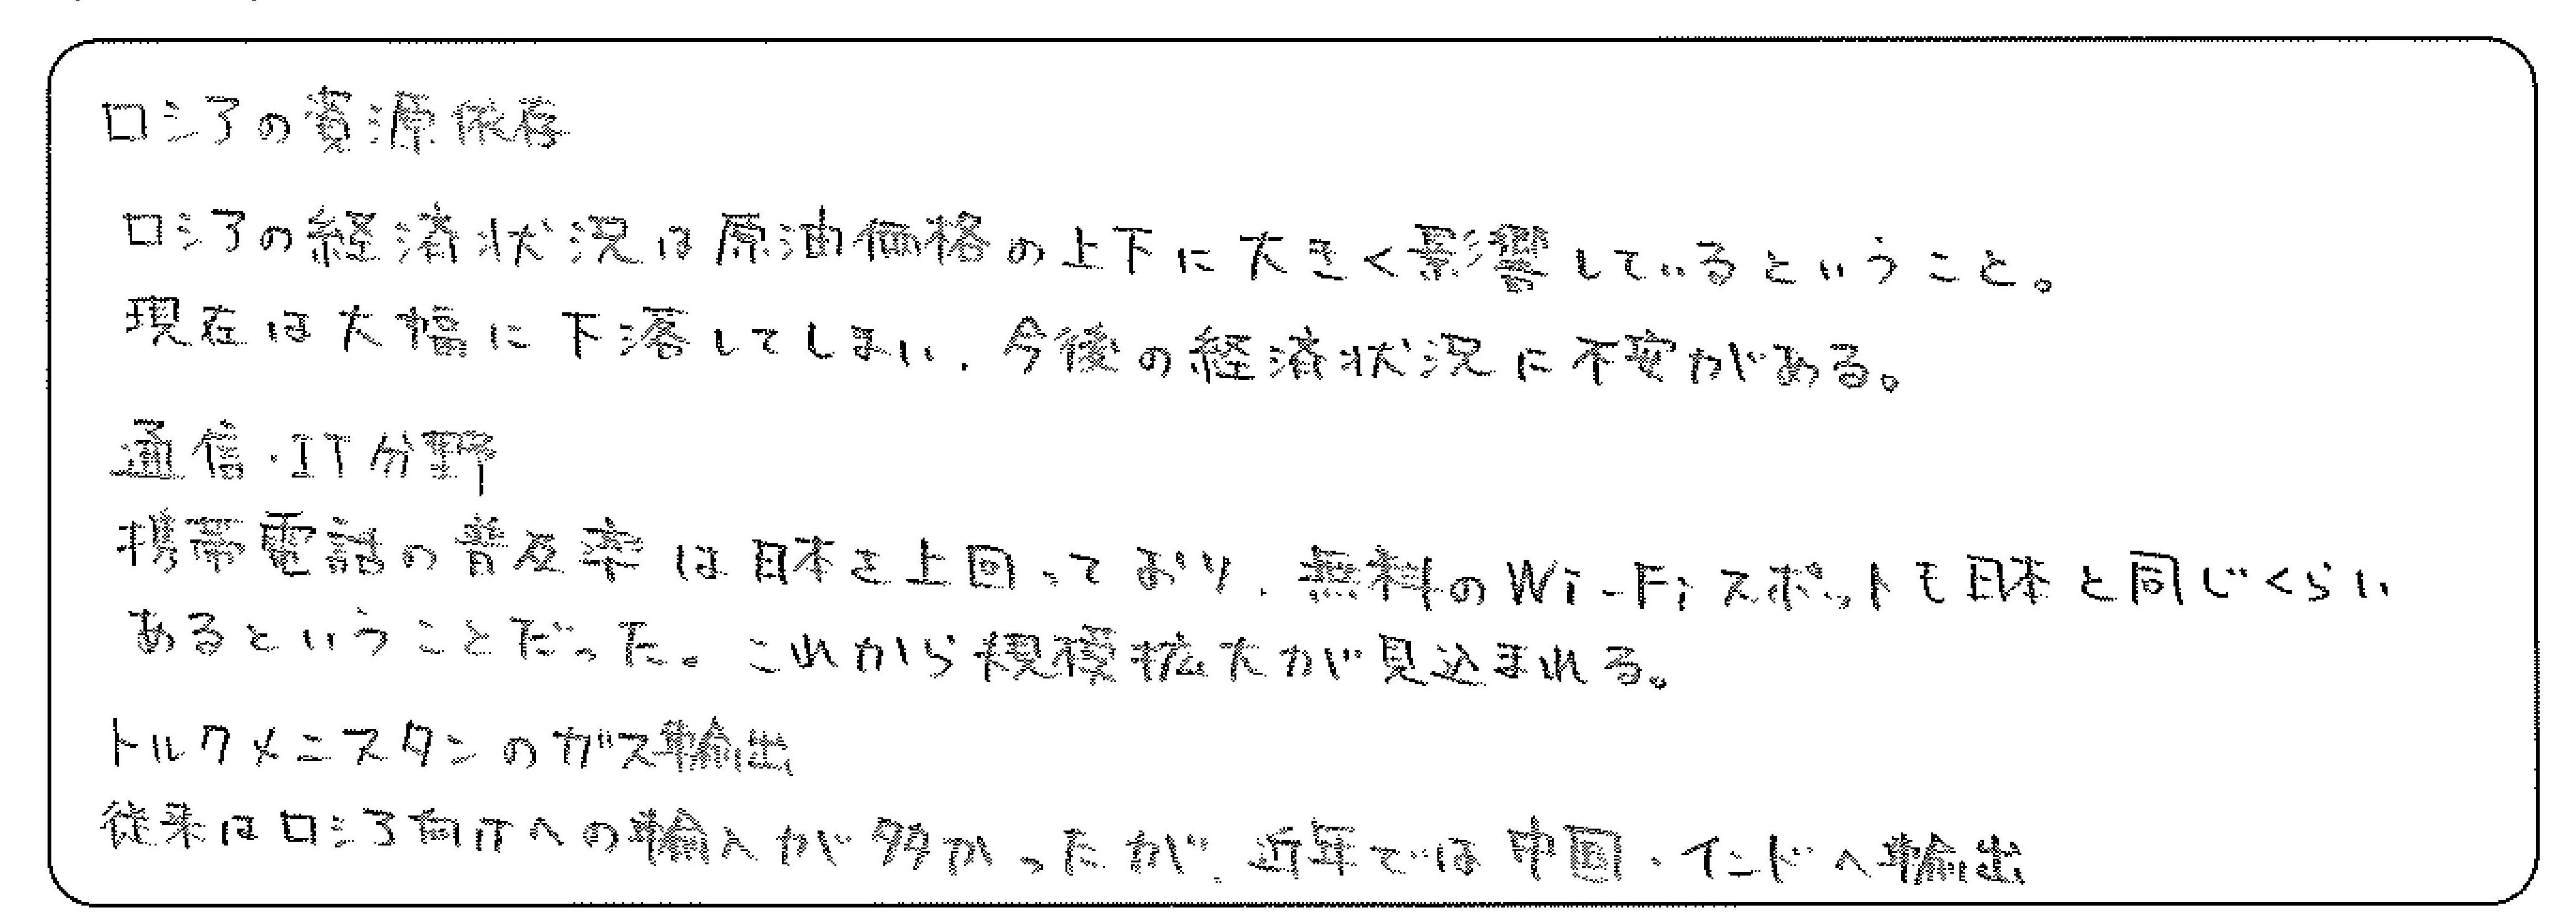 ロシアの資源依存
ロシアの経済状況は原油価格の上下に大きく影響しているということ。
現在は大幅に下落してしまい、今後の経済状況に不安がある。
通信・IT分野
携帯電話の普及率は日本を上回っており、無料のWi-Fiスポットも日本と同じくらい
あるということだった。これから規模拡大が見込まれる。
トルクメニスタンのガス輸出
従来はロシア向けへの輸入が多かったが、近年では中国・インドへ輸出